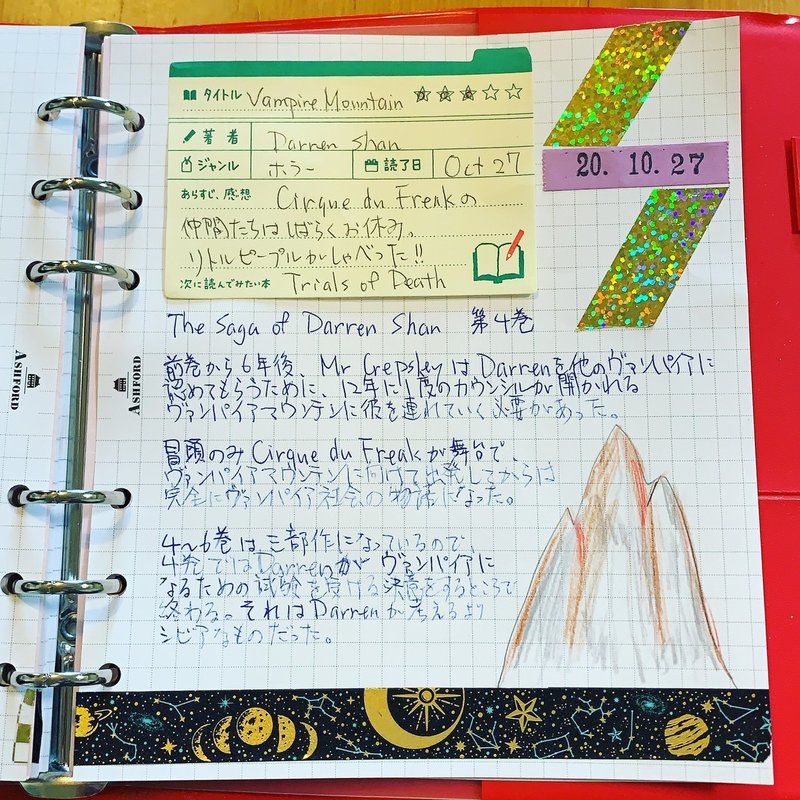 タイトル Vampire Mountain ★★★☆☆
著者 Darren Shan
ジャンル ホラー 読了日 Oct 27
あらすじ、感想 Cirque du Freakの
仲間たちはしばらくお休み。
リトルピープルがしゃべった!!
次に読んでみたい本 Trials of Death
20. 10. 27
The Saga of Darren Shan 第4巻
前巻から6年後、Mr CrepsleyはDarrenを他のヴァンパイアに
認めてもらうために、12年に1度のカウンシルが開かれる
ヴァンパイアマウンテンに彼を連れていく必要があった。
冒頭のみCirque du Freakが舞台で、
ヴァンパイアマウンテンに向けて出発してからは
完全にヴァンパイア社会の物語になった。
4〜6巻は三部作になっているので、
4巻ではDarrenがヴァンパイアに
なるための試験を受ける決意をするところで
終わる。それはDarrenが考えるより
シビアなものだった。
ASHFORD
ASHFORD